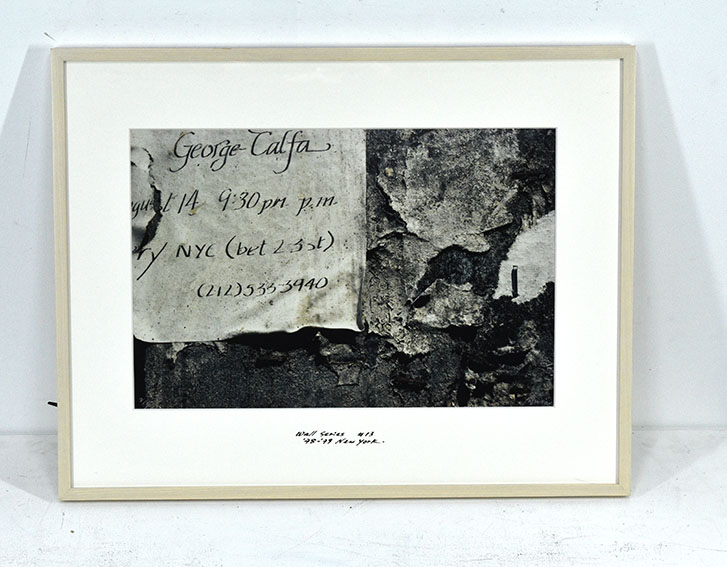 George Calfa
gust 14 9:30 pm p.m
ry NYC (bet 2 3st)
(212) 533-3940
Wall Series #13
'98-'99 New York.